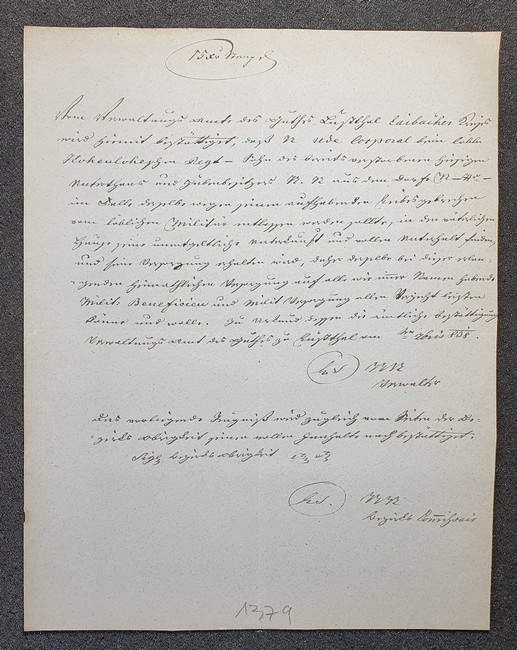 15xr Stempel
Vom Verwaltungs Amte des Guthes Lustthal Laibacher Kreises
wird hiemit bestättiget, daß N Ude Corporal beim löbl.
Hohenloheschen Regt – Sohn des bereits verstorbenen hiesigen
Unterthans und Hubenbesitzers N. N. aus dem Dorfe N – Hs –
im Falle derselbe wegen seinem aufhabenden Leibsgebrechen
vom löblichen Militär entlassen werden sollte, in der väterlichen
Hause seine unentgeltliche Unterkunft und vollen Unterhalt finden,
und seine Versorgung erhalten wird, daher derselbe bei dieser
genden heimathlichen Versorgung auf alle wie immer Namen habende
Milit Beneficien und Milit Versorgung allen Verzicht leisten
könne und wolle. Zu Urkund dessen die ämtliche Bestättigung
Verwaltungs Amt des Guthes zu Lustthal am
NN
Verwalter
Das vorliegende Zeugniß wird zugleich von Seite der Be-
zirks Obrigkeit seinem vollen Innhalte nach bestättiget.
Bezirks Obrigkeit
NN
Bezirks Commissair
1379